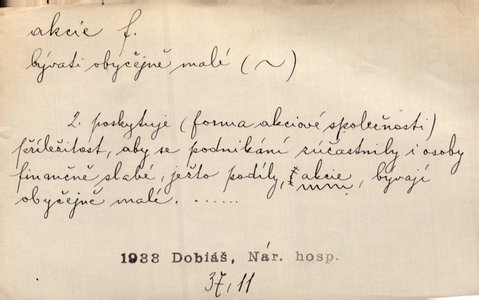 akcie f.
bývati obyčejně malé (~)
2. poskytuje (forma akciové společnosti)
příležitost, aby se podnikání súčastnily i osoby
finančně slabé, ježto podíly, akcie, bývají
obyčejně malé. ......
1933 Dobiáš, Nár. hosp.
37,11